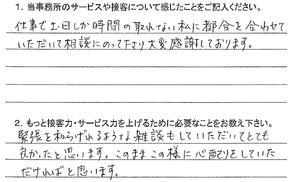 1. 当事務所のサービスや接客について感じたことをご記入ください。
仕事で土日しか時間の取れない私に都合を合わせて
いただいて相談にのって下さり大変感謝しております。
2. もっと接客力・サービス力を上げるために必要なことをお教え下さい。
緊張を和らげれるような雑談もしていただいてとても
良かったと思います。このままこの様に心配りをしていた
だければと思います。